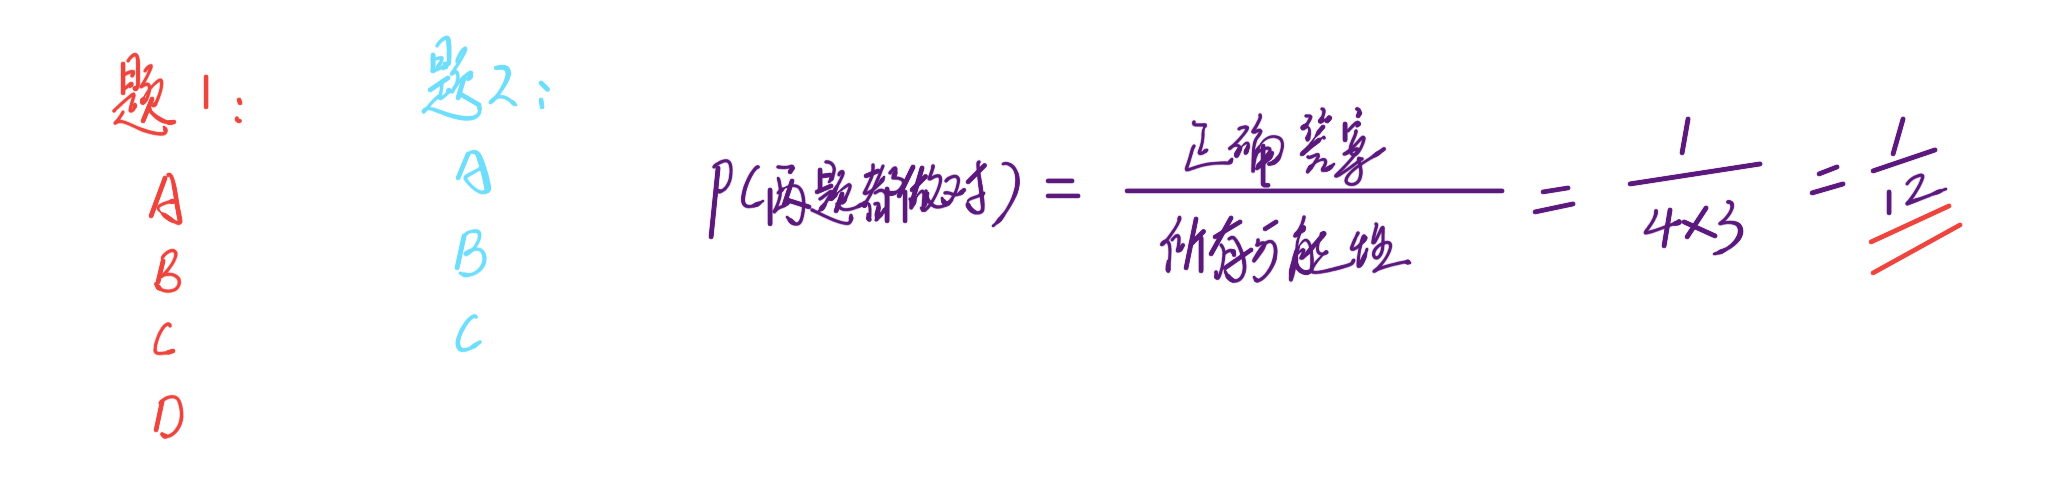 题1:
A
B
C
D
题2:
A
B
C
P(两题都做对) = 正确答案 / 所有可能性 = 1 / 4×3 = 1 / 12